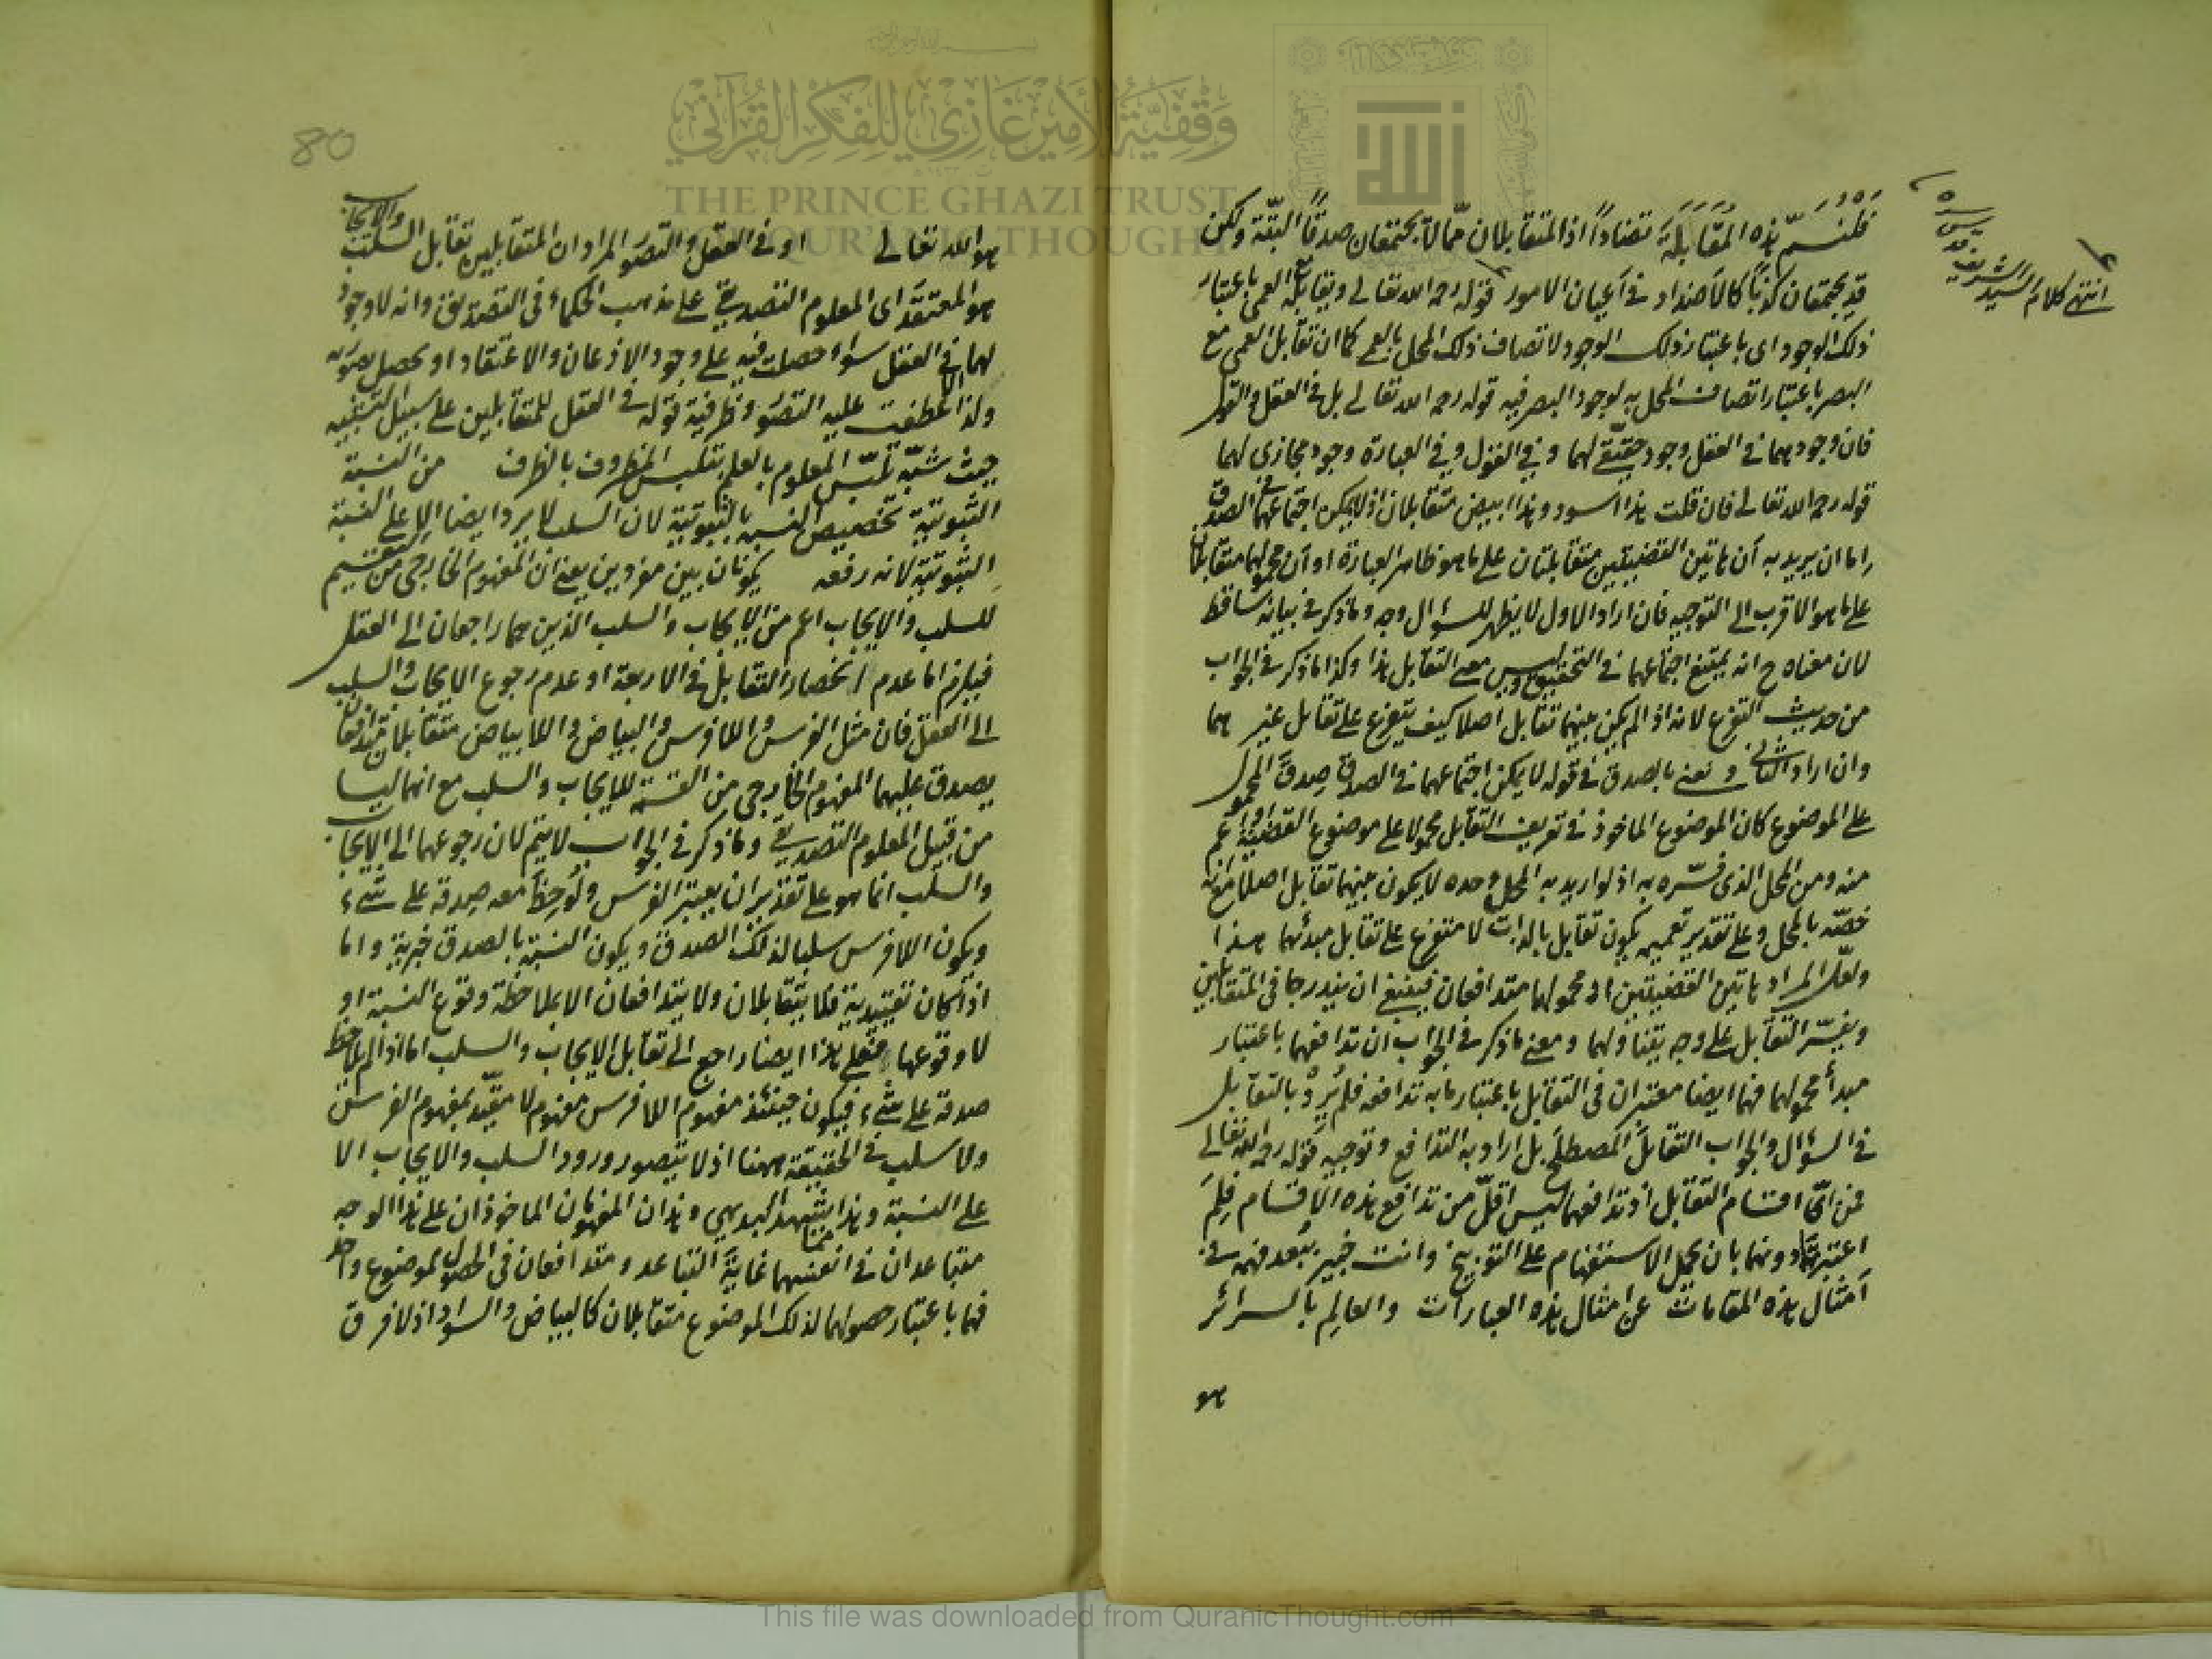 فلنسمّ هذه المقابلة تضاداً اذ المتقابلان مما لا يجتمعان صدقاً البتة ولكن
قد يجتمعان كوناً كالاضداد في اعيان الامور قوله رحمه الله تعالى ويقابله العمى باعتبار
ذلك الوجود اى باعتبار ذلك الوجود لاتصاف ذلك المحل بالعمى كما ان تقابل العمى مع
البصر باعتبار اتصاف المحل به لوجود البصر فيه قوله رحمه الله تعالى بل في العقل والقول
فان وجودهما في العقل وجود حقيقي لهما وفي القول وفي العبارة وجود مجازى لهما
قوله رحمه الله تعالى فان قلت هذا اسود وهذا ابيض متقابلان اذ لا يمكن اجتماعهما في الصدق
اما ان يريد به ان هاتين القضيتين متقابلتان على ما هو ظاهر العبارة او ان محمولهما متقابلان
على ما هو الاقرب الى التوجيه فان اراد الاول لا يظهر للسؤال وجه وما ذكر في بيانه ساقط
لان معناه ح انه يمتنع اجتماعهما في التحقق وليس معنى التقابل هذا وكذا ما ذكر في الجواب
من حديث التفرع لانه اذا لم يكن بينهما تقابل اصلا كيف يتفرع على تقابل غيرهما
وان اراد الثاني ونعني بالصدق في قوله لا يمكن اجتماعهما في الصدق صدق المحمول
على الموضوع كان الموضوع الماخوذ في تعريف التقابل محمولا على موضوع القضية واعم
منه ومن المحل الذى فسّره به اذ لو اريد به المحل وحده لا يكون بينهما تقابل اصلا مع انه
خصّه بالمحل وعلى تقدير تعميمه يكون تقابل بالذات لا متفرع على تقابل مبدئهما هذا
ولعلّ المراد هاتين القضيتين ان محمولهما متدافعان فينبغي ان يندرجا في المتقابلين
ويفسّر التقابل على وجه يتناولهما ومعنى ما ذكر في الجواب ان تدافعهما باعتبار
مبدأ محمولهما فهما ايضا معتبران في التقابل باعتبار ما به تدافعه فلم يُرِدْ بالتقابل
في السؤال والجواب التقابلَ المصطلح بل اراد به التدافع وتوجيه قوله رحمه الله تعالى
فمن اىّ اقسام التقابل اذ تدافعهما ليس اقلّ من تدافع هذه الاقسام فلِمَ
اعتبرتها دونهما بان يحمل الاستفهام على التوبيخ وانت خبير ببُعد فهمه في
امثال هذه المقامات عن امثال هذه العبارات والعالِم بالسرائر
هو
انتهى كلام السيد الشريف قدس سره
80
هو الله تعالى او في العقل والتصور المراد ان المتقابلين تقابل السلب والايجاب
هو المعتقَد اى المعلوم التصديقي على مذهب الحكماء في التصديق وانه لا وجود
لهما في العقل سواء حصلت فيه على وجود الاذعان والاعتقاد او بحصل بصوره
ولذا عطفت عليه التصور وظرفية قوله في العقل للمتقابلين على سبيل التشبيه
حيث شبّه تلبّس المعلوم بالعلم بتلبس المظروف بالظرف من النسبة
الثبوتية تخصيص النسبه بالثبوتية لان السلب لا يرد ايضا الا على النسبة
الثبوتية لانه رفعه يكونان بين مفردين يعنى ان المفهوم الخارجي من تقسيم
للسلب والايجاب اعم من الايجاب والسلب الذين هما راجعان الى العقل
فيلزم اما عدم انحصار التقابل في الاربعة او عدم رجوع الايجاب والسلب
الى العقل فان مثل الفرس واللافرس والبياض واللابياض متقابلان متدافعان
يصدق عليهما المفهوم الخارجي من القسمة للايجاب والسلب مع انهما ليسا
من قبيل المعلوم التصديقي وما ذكر في الجواب لا يتم لان رجوعهما الى الايجاب
والسلب انما هو على تقدير ان يعتبر الفرس ولُوحِظَ معه صدقه على شىء
ويكون اللافرس سلبا لذلك الصدق ويكون النسبة بالصدق خبرية واما
اذا كان تقييدية فلا يتقابلان ولا يتدافعان الا بملاحظة وقوع النسبة او
لا وقوعها فعلى هذا ايضا راجع الى تقابل الايجاب والسلب اما اذا لم يلاحظ
صدقه على شىء فيكون حينئذ مفهوم اللافرس مفهوم لا مقيّد بمفهوم الفرس
ولا سلب في الحقيقة ههنا اذ لا يتصور ورود السلب والايجاب الا
على النسبة وهذا يشهد البديهي وهذان المفهومان الماخوذان على هذا الوجه
متباعدان في انفسهما غاية التباعد ومتدافعان في الحصول لموضوع واحد
فهما باعتبار حصولهما لذلك الموضوع متقابلان كالبياض والسواد اذ لا فرق
وقفية الأمير غازي للفكر القرآني
THE PRINCE GHAZI TRUST
FOR QUR'ANIC THOUGHT
This file was downloaded from QuranicThought.com